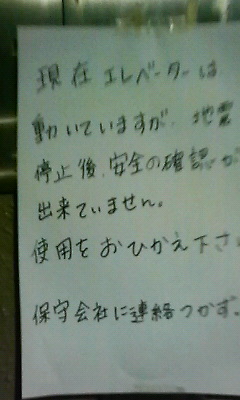 現在エレベーターは
動いていますが、地震
停止後、安全の確認が
出来ていません。
使用をおひかえ下さ
保守会社に連絡つかず。